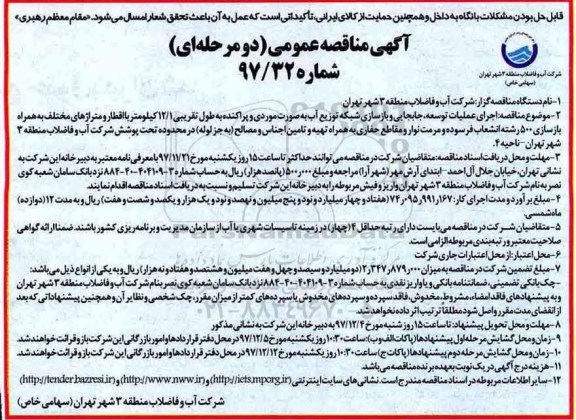 قابل حل بودن مشکلات با نگاه به داخل و همچنین حمایت از کالای ایرانی، تأکیداتی است که عمل به آن باعث تحقق شعار امسال می‌شود. «مقام معظم رهبری»
آگهی مناقصه عمومی (دو مرحله‌ای)
شماره ۹۷/۳۲
شرکت آب و فاضلاب منطقه ۳ شهر تهران
(سهامی خاص)
۱-نام دستگاه مناقصه گزار: شرکت آب و فاضلاب منطقه ۳ شهر تهران
۲-موضوع مناقصه: اجرای عملیات توسعه، جابجایی و بازسازی شبکه توزیع آب به صورت موردی و پراکنده به طول تقریبی ۱۲/۱ کیلومتر با اقطار و متراژهای مختلف به همراه
بازسازی ۵۰۰ رشته انشعاب فرسوده و مرمت نوار و مقاطع حفاری به همراه تهیه و تامین اجناس و مصالح (به جز لوله) در محدوده تحت پوشش شرکت آب و فاضلاب منطقه ۳
شهر تهران – ناحیه ۴.
۳-مهلت و محل دریافت اسناد مناقصه: متقاضیان شرکت در مناقصه می‌توانند حداکثر تا ساعت ۱۵ روز یکشنبه مورخ ۹۷/۱۱/۲۱ با معرفی نامه معتبر به دبیرخانه این شرکت به
نشانی تهران، خیابان جلال آل احمد – ابتدای آرش مهر (شهر آرا) مراجعه و مبلغ ۵۰۰٫۰۰۰ (پانصد هزار) ریال به حساب شماره ۳-۴۰۴۱۰۹-۴۰-۸۸۴ نزد بانک سامان شعبه کوی
نصر به نام شرکت آب و فاضلاب منطقه ۳ شهر تهران واریز و فیش مربوطه را به دبیرخانه این شرکت تسلیم و نسبت به دریافت اسناد مناقصه اقدام نمایند.
۴-مبلغ برآورد و مدت اجرای کار: ۷۴٫۰۹۵٫۹۹۱٫۱۶۷ (هفتاد و چهار میلیارد و نود و پنج میلیون و نهصد و نود و یک هزار و یکصد و شصت و هفت) ریال و به مدت ۱۲ (دوازده)
ماه شمسی.
۵-متقاضیان شرکت در مناقصه می‌بایست دارای رتبه حداقل ۴ (چهار) در زمینه تاسیسات شهری یا آب از سازمان مدیریت و برنامه ریزی کشور باشند. ضمنا ارائه گواهی
صلاحیت معتبر و رتبه بندی مربوطه الزامی است.
۶-محل اعتبار: از محل اعتبارات جاری شرکت
۷-مبلغ تضمین شرکت در مناقصه به میزان ۲٫۳۴۷٫۸۷۹٫۰۰۰ (دو میلیارد و سیصد و چهل و هفت میلیون و هشتصد و هفتاد و نه هزار) ریال و به یکی از انواع ذیل می‌باشد:
-چک بانکی تضمینی، ضمانتنامه بانکی و یا واریز نقدی به حساب شماره ۳-۴۰۴۱۰۹-۴۰-۸۸۴ نزد بانک سامان شعبه کوی نصر بنام شرکت آب و فاضلاب منطقه ۳ شهر تهران
و به پیشنهادهای فاقد امضاء، مشروط، مخدوش، فاقد سپرده و سپرده‌های مخدوش یا سپرده‌های کمتر از میزان مقرر، چک شخصی و نظایر آن و همچنین پیشنهاداتی که بعد
از انقضای مدت مقرر واصل شود مطلقا ترتیب اثر داده نخواهد شد.
۸-مهلت و محل تحویل پیشنهاد: تا ساعت ۱۵ روز شنبه مورخ ۹۷/۱۲/۴ به دبیرخانه این شرکت به نشانی مذکور
۹-زمان و محل گشایش مرحله اول پیشنهادها (پاکات الف و ب): ساعت ۱۰:۳۰ روز یکشنبه مورخ ۹۷/۱۲/۵ در محل دفتر قراردادها و امور بازرگانی این شرکت باز و قرائت خواهند شد.
۱۰-زمان و محل گشایش مرحله دوم پیشنهادها (پاکات ج): ساعت ۱۰:۳۰ روز یکشنبه مورخ ۹۷/۱۲/۱۲ در محل دفتر قراردادها و امور بازرگانی این شرکت باز و قرائت خواهند شد.
۱۱-هزینه درج آگهی در یک نوبت به عهده برنده مناقصه می‌باشد.
۱۲-سایر اطلاعات مربوطه در اسناد مناقصه مندرج است. نشانی های سایت اینترنتی (http://iets.mporg.ir) و (http://www.nww.ir) و (http://tender.bazresi.ir)
شرکت آب و فاضلاب منطقه ۳ شهر تهران (سهامی خاص)